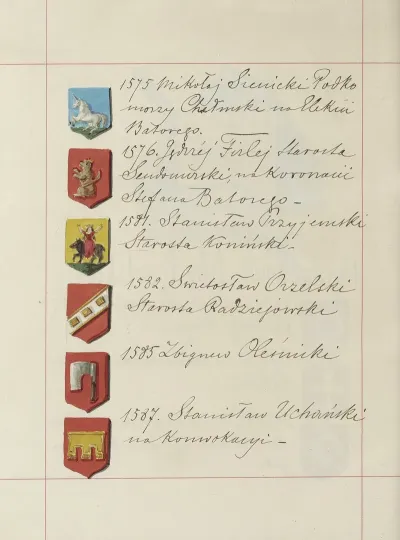 1575 Mikołaj Sienicki Podko
morzy Chełmski na Elekcii
Batorego.
1576. Jędrzéj Firlej Starosta
Sendomirski, na Koronacii
Stefana Batorego —
1581. Stanisław Przyjemski
Starosta Koniński. —
1582. Swietosław Orzelski
Starosta Radziejowski
1585 Zbigniew Oleśnicki
1587. Stanisław Uchański
na Konwokacyi —